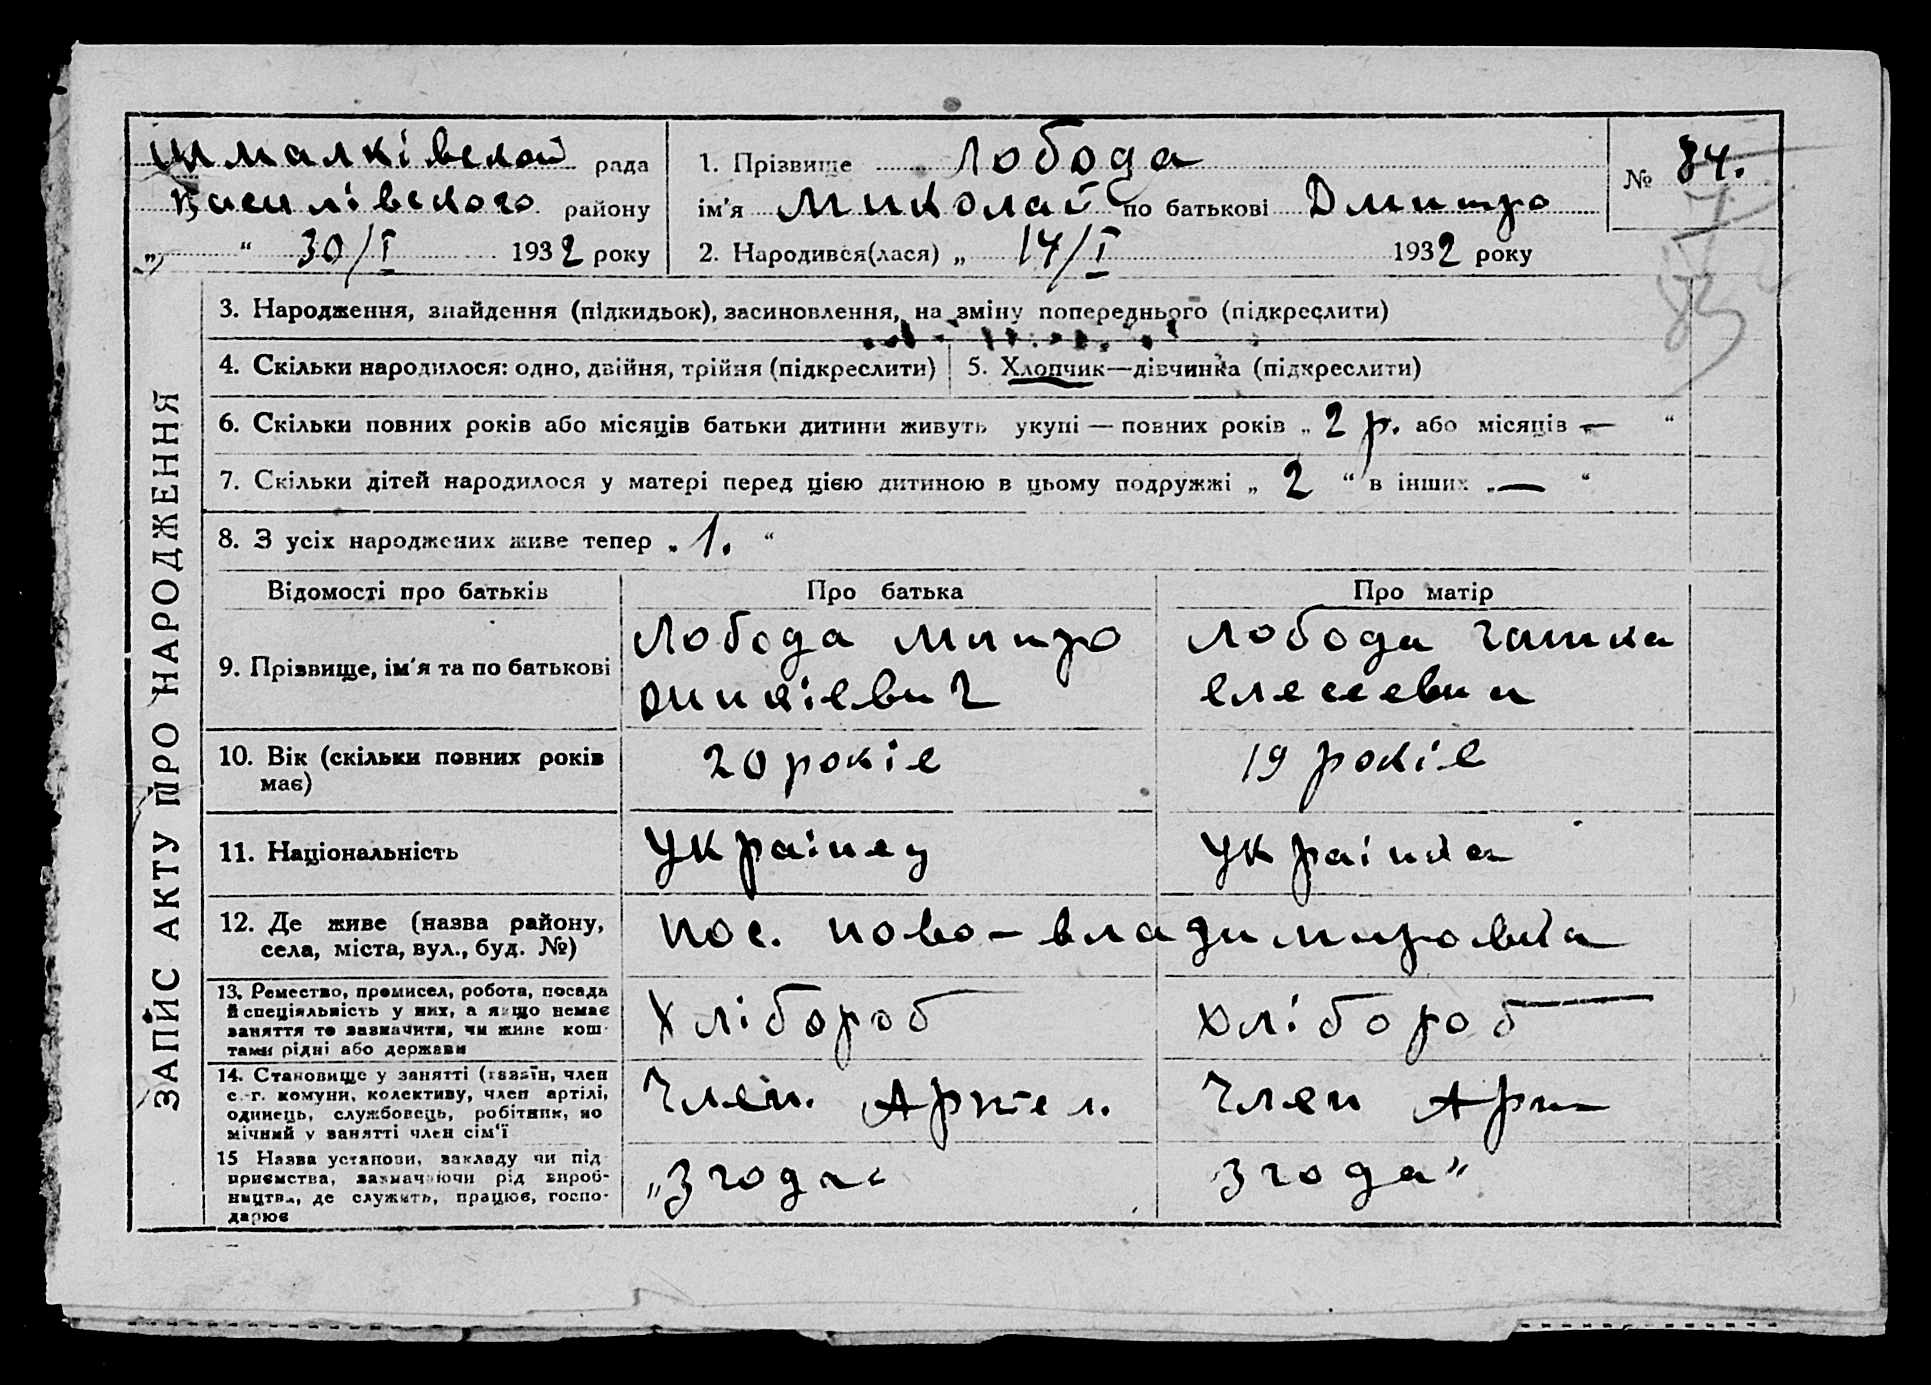 Шмалківской рада
району
„ “ 30/I 1932 року
1. Прізвище Лобода
ім'я Миколай по батькові Дмитро
2. Народився(лася) „ 14/I 1932 року
№ 34.
83
ЗАПИС АКТУ ПРО НАРОДЖЕННЯ
3. Народження, знайдення (підкидьок), засиновлення, на зміну попереднього (підкреслити)
4. Скільки народилося: одно, двійня, трійня (підкреслити)
5. Хлопчик—дівчинка (підкреслити)
6. Скільки повних років або місяців батьки дитини живуть укупі — повних років „ 2 р. або місяців „— “
7. Скільки дітей народилося у матері перед цією дитиною в цьому подружжі „ 2 “ в інших „— “
8. З усіх народжених живе тепер „ 1. “
Відомості про батьків
Про батька
Про матір
9. Прізвище, ім'я та по батькові
Лобода Митро
Лобода
10. Вік (скільки повних років
має)
20 років
19 років
11. Національність
Українец
Українка
12. Де живе (назва району,
села, міста, вул., буд. №)
пос. ново-владимировка
13. Ремество, промисел, робота, посада
й спеціяльність у них, а якщо немає
заняття то зазначити, чи живе кош-
тами рідні або держави
Хлібороб
Хлібороб
14. Становище у занятті (хазяїн, член
с.-г. комуни, колективу, член артілі,
одинець, службовець, робітник, по
мічний у занятті член сім'ї
Член. Артел.
Член Арт
15 Назва установи, закладу чи під
приємства, зазначаючи рід вироб-
ництва, де служить, працює, госпо-
дарює
„Згода“
Згода"